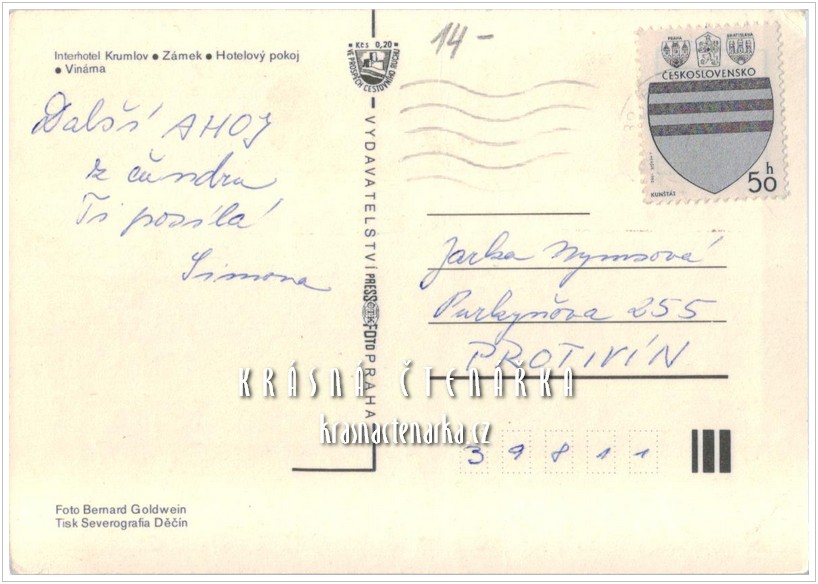 Interhotel Krumlov • Zámek • Hotelový pokoj
• Vinárna
Kčs 0,20
VE PROSPĚCH CESTOVNÍHO RUCHU
14-
PRAHA
BRATISLAVA
ČESKOSLOVENSKO
50 h
KUNŠTÁT
Další AHOJ
z čundru
Ti posílá
Simona
VYDAVATELSTVÍ PRESSFOTO PRAHA
ČTK
Jarka Nymsová
Purkyňova 255
PROTIVÍN
39811
KRÁSNÁ ČTENÁŘKA
krasnactenarka.cz
Foto Bernard Goldwein
Tisk Severografia Děčín